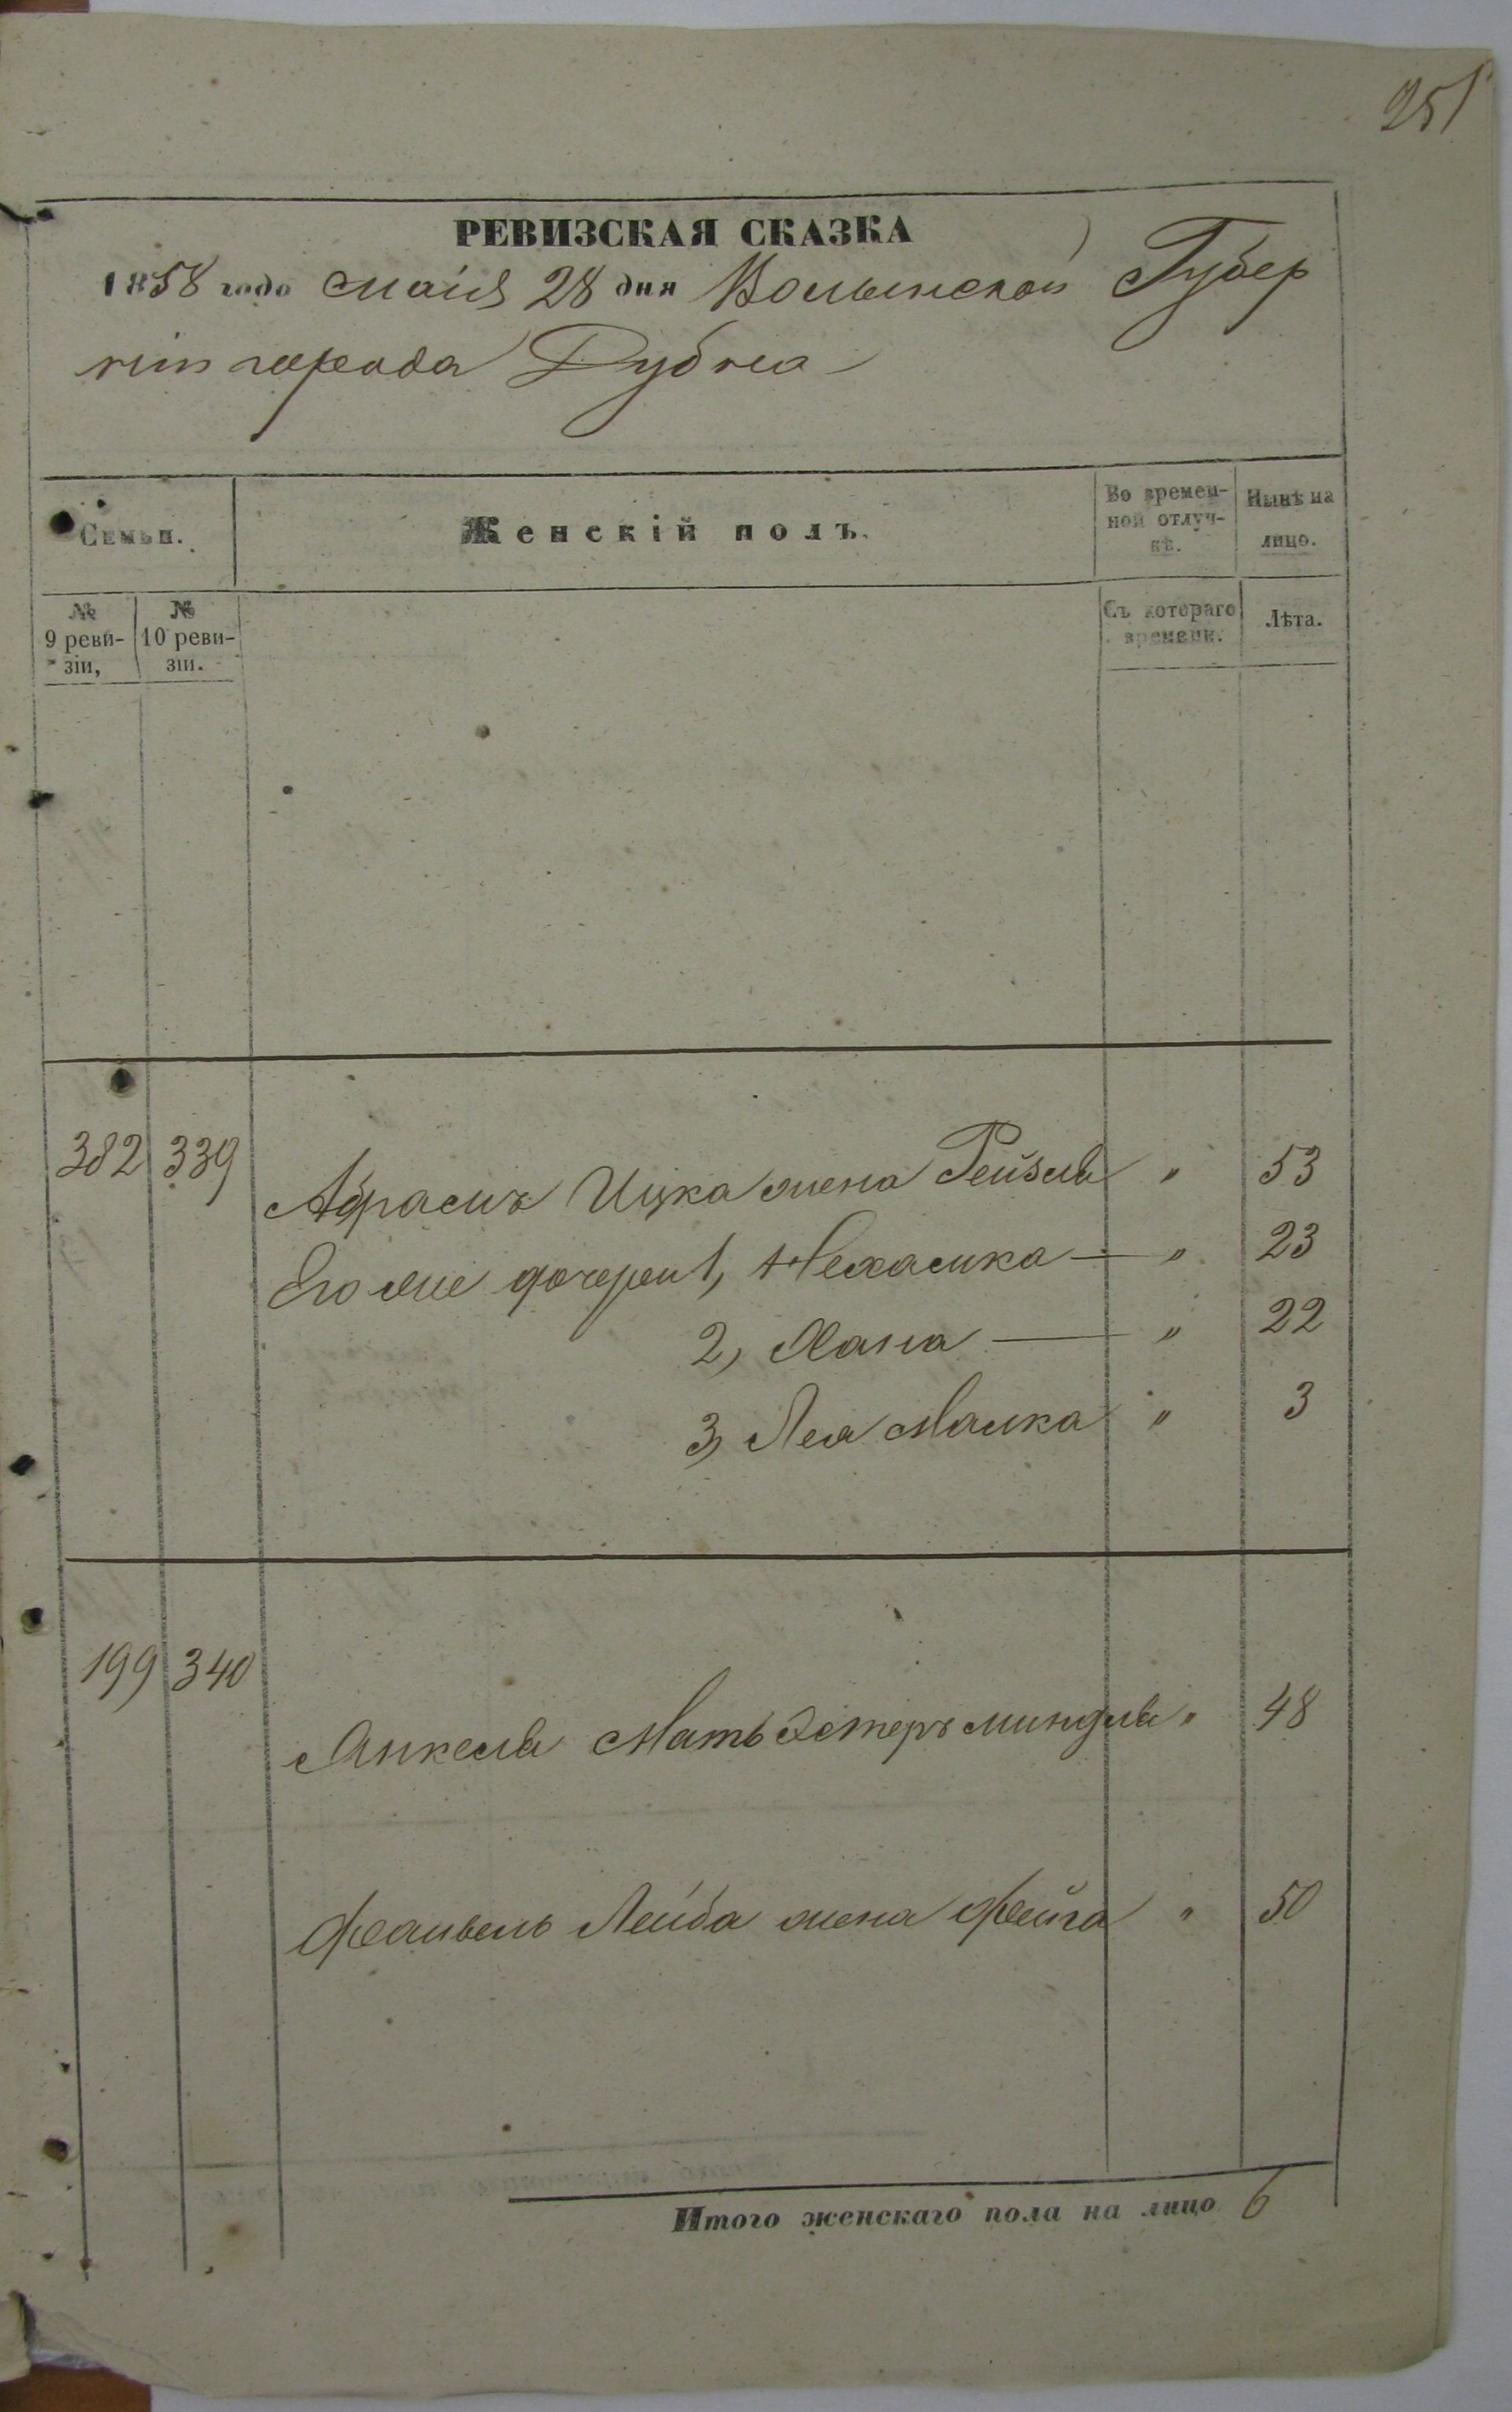 251
РЕВИЗСКАЯ СКАЗКА
1858 года Маія 28 дня Волынской Губер
ніи города Дубна
Семьи.
Женскій полъ.
Во времен-
ной отлуч-
кѣ.
Нынѣ на
лицо.
№
9 реви-
зіи,
№
10 реви-
зіи.
Съ котораго
времени.
Лѣта.
382 339 Абрамъ Ицка жена Рейзля " 53
Его же дочери 1, Нехамка — " 23
2, Хана — " 22
3, Лея Малка " 3
199 340 Янкеля Мать Эстеръ миндля " 48
Файвель Лейба жена Фейга " 50
Итого женскаго пола на лицо 6